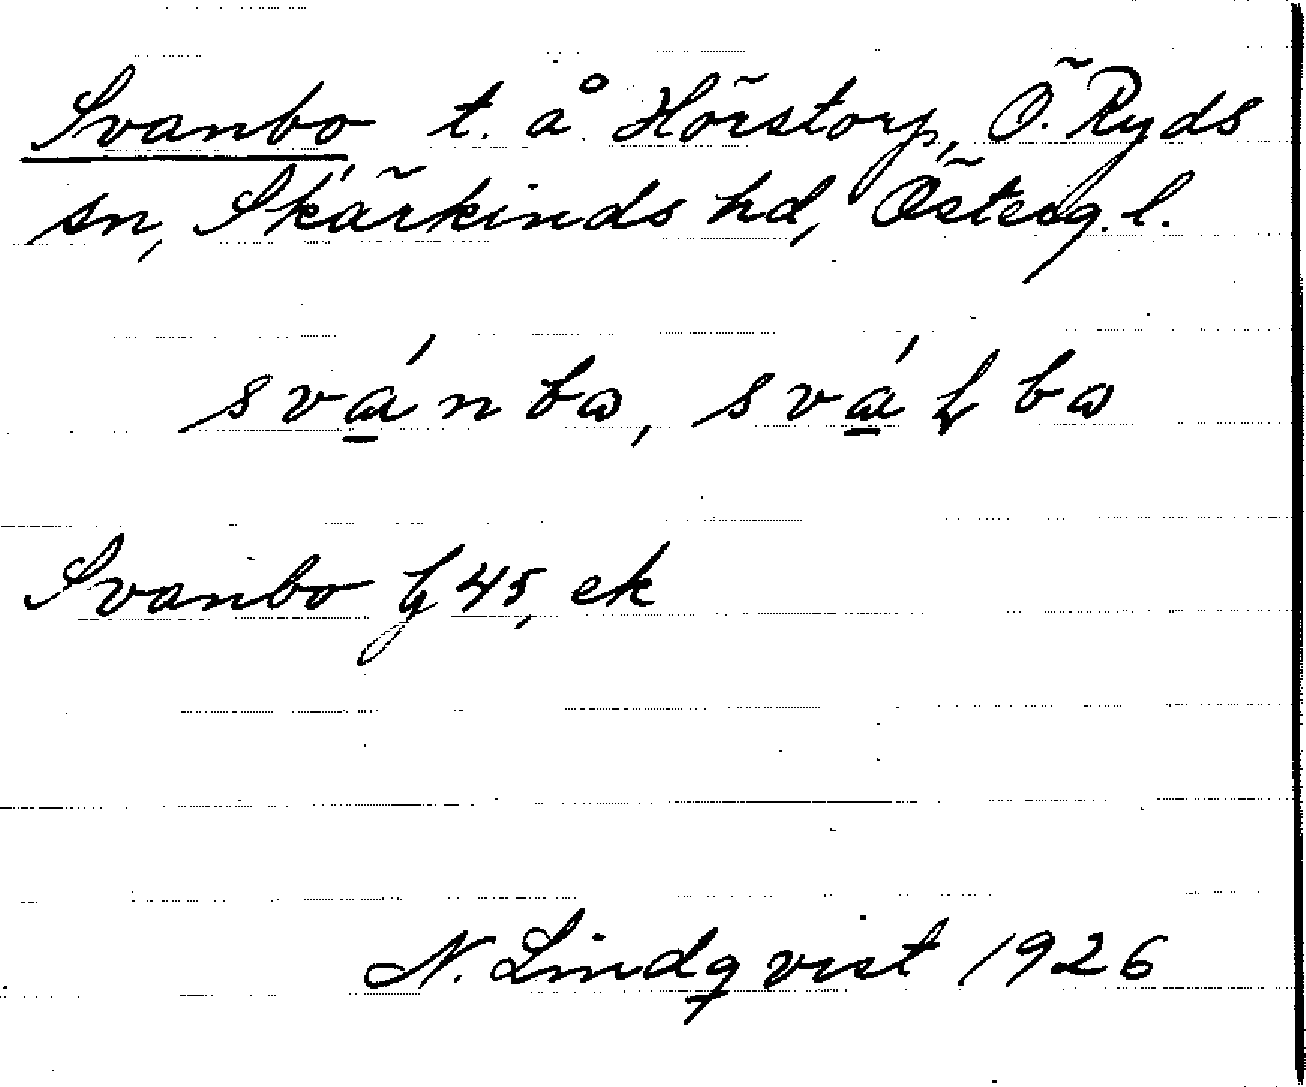 Svanbo t. å Hörstorp, Ö. Ryds
sn, Skärkinds hd, Österg. l.
svánbo, svá bo
Svanbo 45, ek
N. Lindqvist 1926